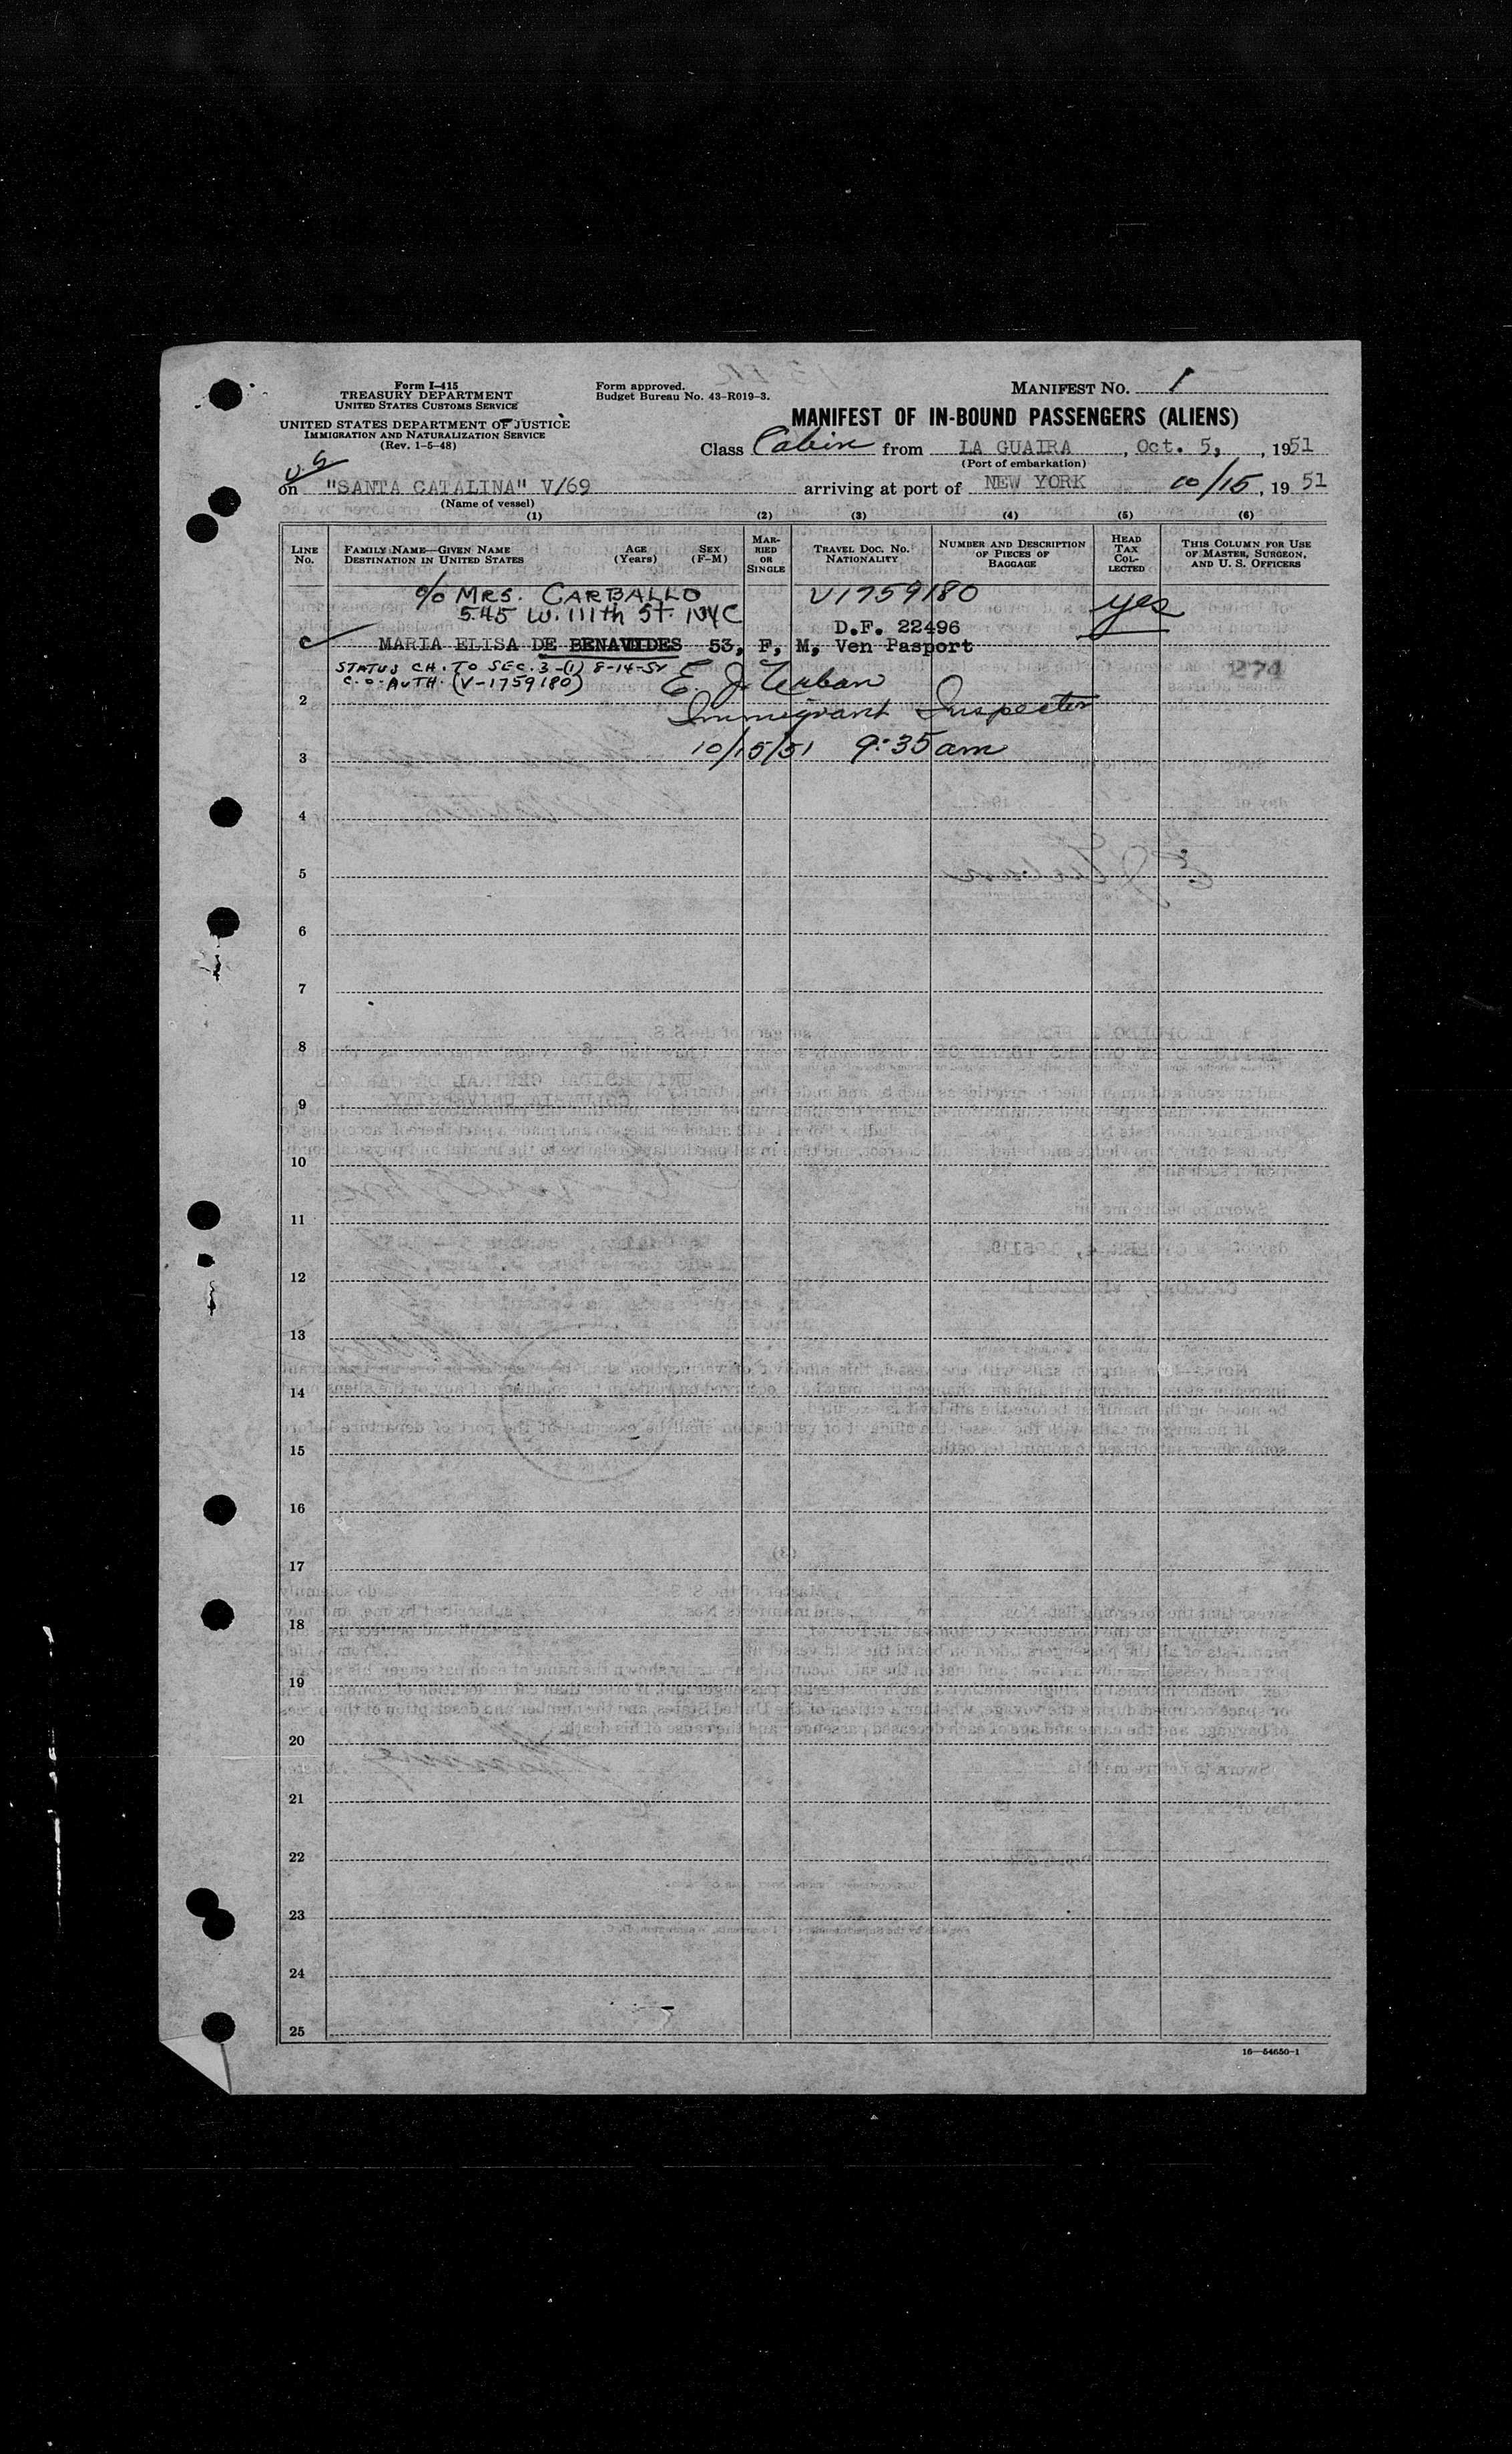 Form I-415
TREASURY DEPARTMENT
UNITED STATES CUSTOMS SERVICE
UNITED STATES DEPARTMENT OF JUSTICE
IMMIGRATION AND NATURALIZATION SERVICE
(Rev. 1-5-48)
Form approved.
Budget Bureau No. 43-R019-3.
MANIFEST No. 1
MANIFEST OF IN-BOUND PASSENGERS (ALIENS)
Class Cabin from LA GUAIRA, Oct. 5, , 1951
(Port of embarkation)
on "SANTA CATALINA" V/69 arriving at port of NEW YORK 10/15, 1951
(Name of vessel)
(1) (2) (3) (4) (5) (6)
LINE No. FAMILY NAME—GIVEN NAME DESTINATION IN UNITED STATES AGE (Years) SEX (F-M) MARRIED OR SINGLE TRAVEL DOC. NO. NATIONALITY NUMBER AND DESCRIPTION OF PIECES OF BAGGAGE HEAD TAX COLLECTED THIS COLUMN FOR USE OF MASTER, SURGEON, AND U. S. OFFICERS
c/o MRS. CARBALLO V1759180 yes
545 W. 111th St. NYC
D.F. 22496
MARIA ELISA DE BENAVIDES 53, F, M, Ven Pasport
STATUS CH. TO SEC. 3-(1) 8-14-52 E. J. Urban 274
C.O. AUTH. (V-1759180)
2 Immigrant Inspector
3 10/15/51 9:35am
4
5
6
7
8
9
10
11
12
13
14
15
16
17
18
19
20
21
22
23
24
25
16—54650-1